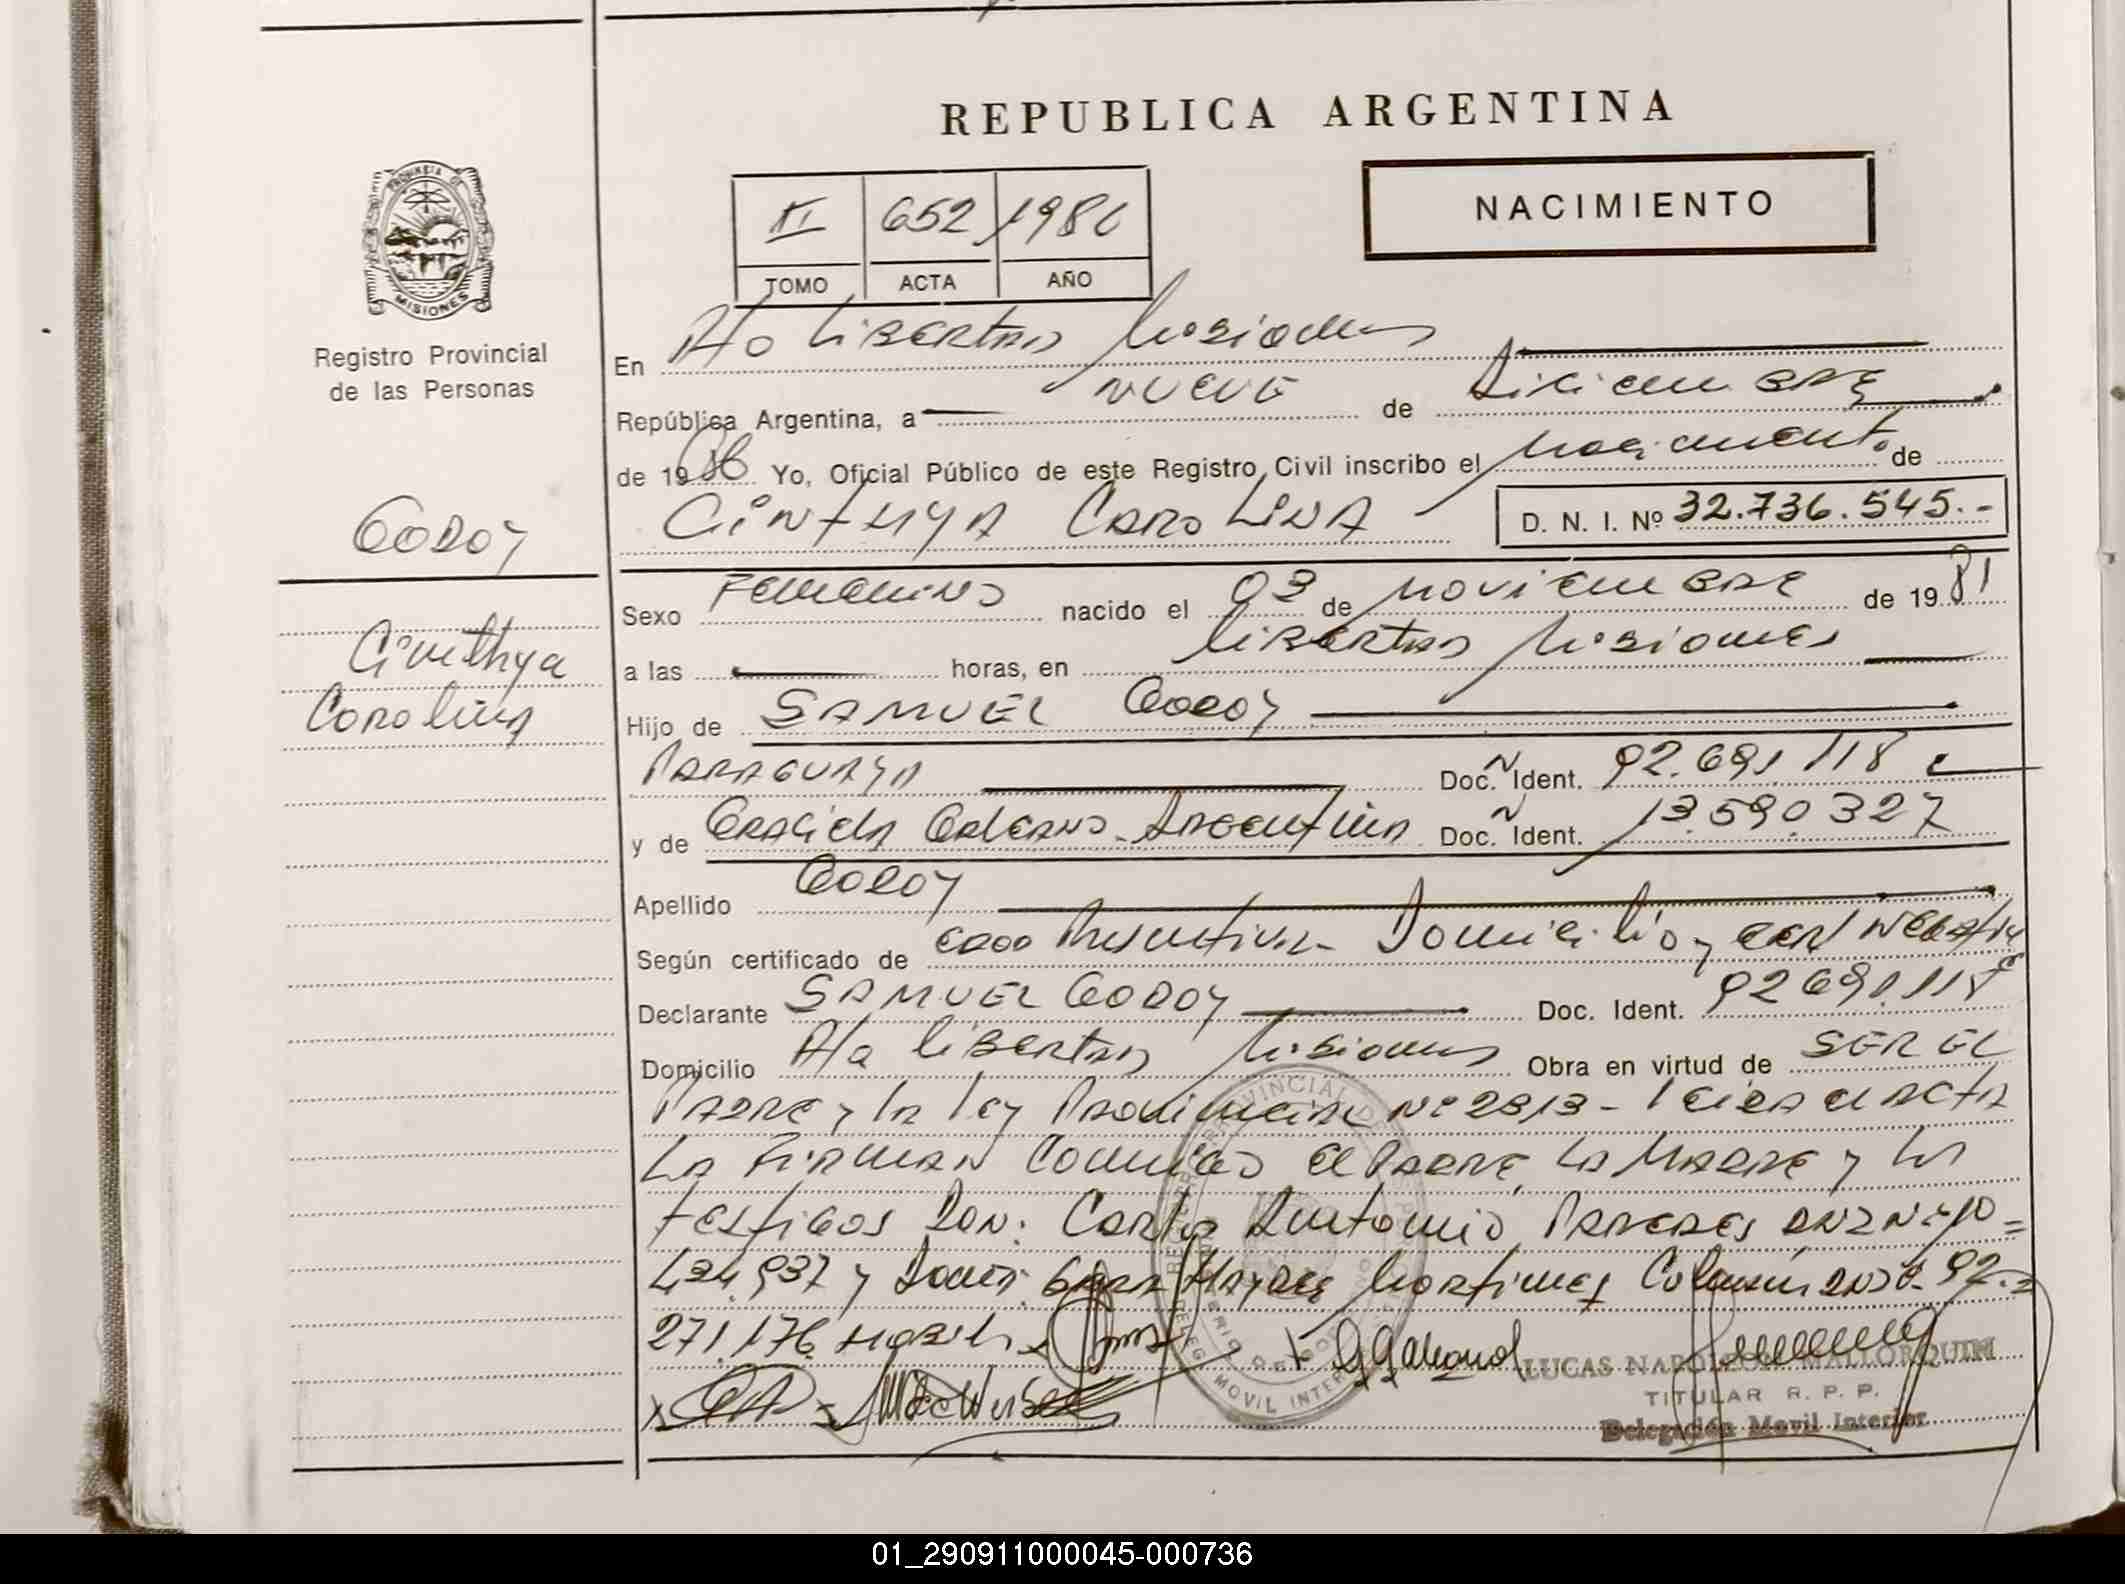 REPUBLICA ARGENTINA
PROVINCIA DE
MISIONES
Registro Provincial
de las Personas
652 1986
TOMO ACTA AÑO
NACIMIENTO
En Pto Libertad Misiones
República Argentina, a NUEVE de Diciembre
de 1986 Yo, Oficial Público de este Registro Civil inscribo el Nacimiento de
CINTHYA CAROLINA D. N. I. Nº 32.736.545.-
GODOY
Cinthya
Carolina
Sexo Femenino nacido el 03 de Noviembre de 1981
a las horas, en Libertad Misiones
Hijo de SAMUEL GODOY
PARAGUAYA Doc. Ident. 92.691.118
y de Graciela Argentina Doc. Ident. 13.590.327
Apellido GODOY
Según certificado de Domicilio y
Declarante SAMUEL GODOY Doc. Ident. 92.691.118
Domicilio Pto Libertad Misiones Obra en virtud de SER EL
PADRE y la Ley Provincial Nº Leida el Acta
La Firman Conmigo el Padre, La Madre y los
testigos Don: Carlos Antonio Paredes
434.937 y Doña: Martinez 92.-
271.176
REGISTRO PROVINCIAL DE
DELEG MOVIL INTERIOR
LUCAS MALLORQUIN
TITULAR R. P. P.
Delegación Movil Interior
01_290911000045-000736